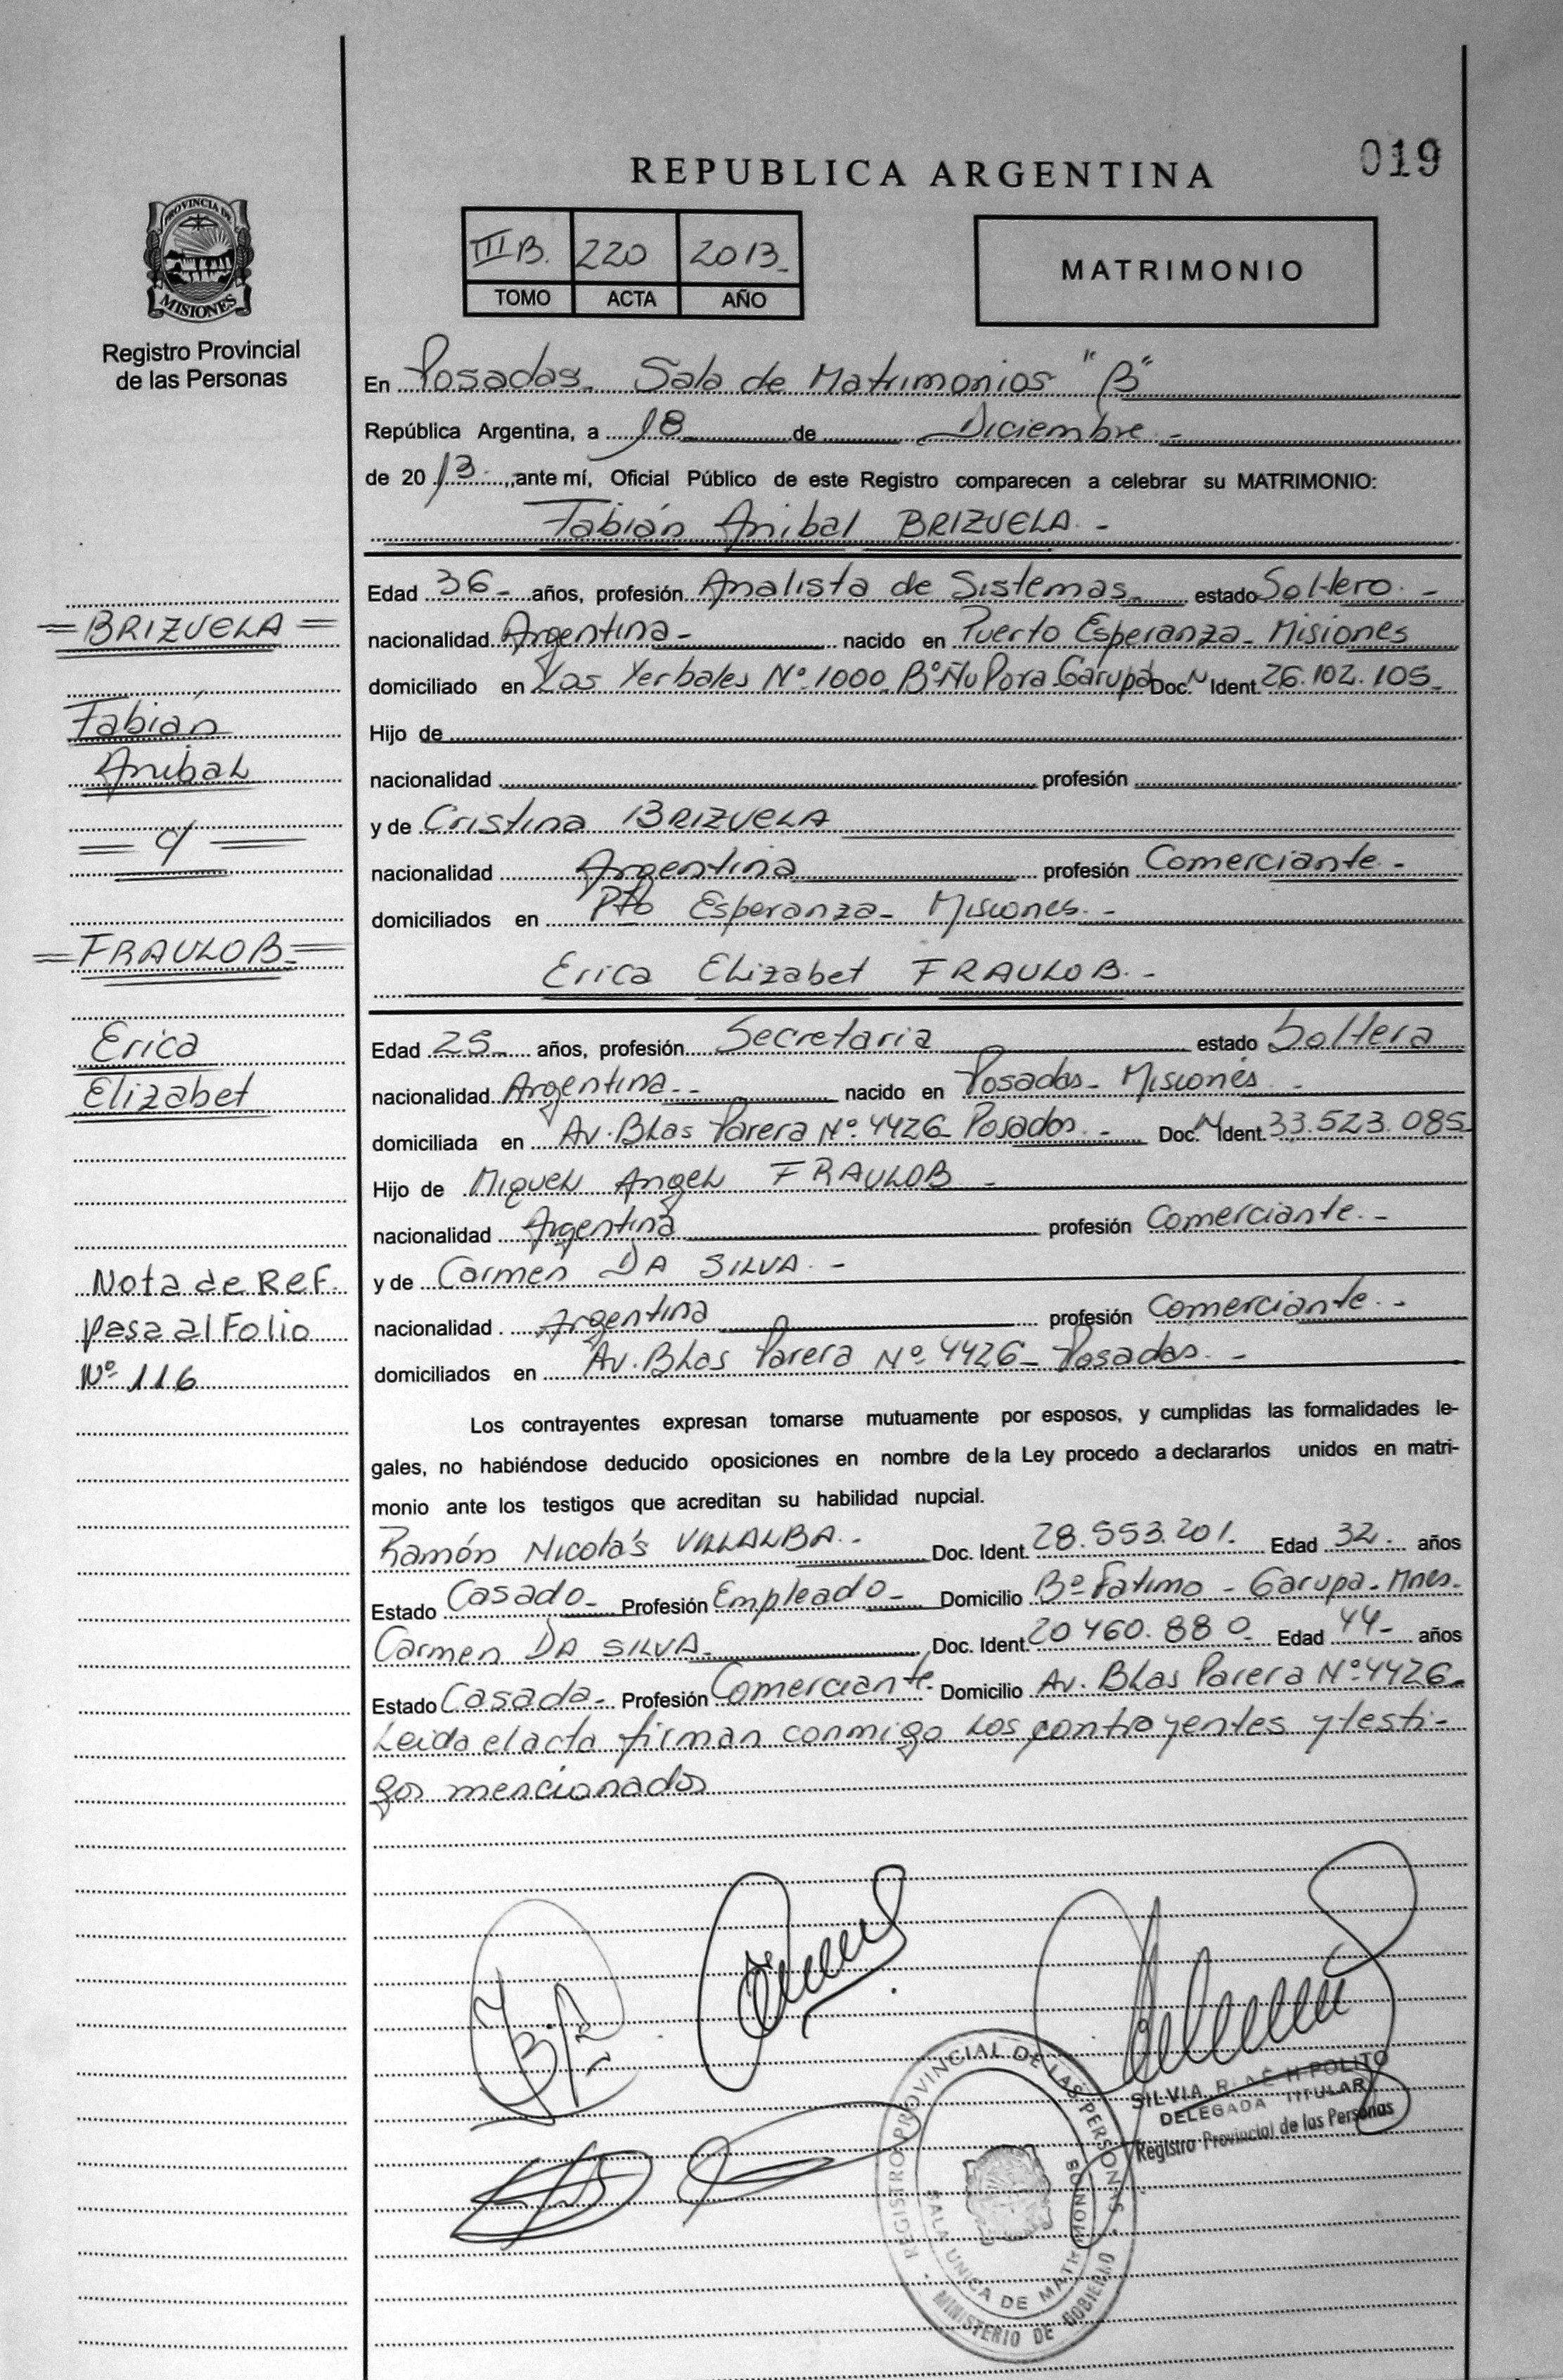 REPUBLICA ARGENTINA
019
PROVINCIA DE
MISIONES
Registro Provincial
de las Personas
III B. 220 2013_
TOMO ACTA AÑO
MATRIMONIO
En Posadas_ Sala de Matrimonios "B"
República Argentina, a 18_ de Diciembre_
de 2013. ,ante mí, Oficial Público de este Registro comparecen a celebrar su MATRIMONIO:
Fabián Anibal BRIZUELA._
Edad 36_ años, profesión Analista de Sistemas_ estado Soltero._
nacionalidad Argentina_ nacido en Puerto Esperanza_ Misiones
domiciliado en Los Yerbales Nº 1000_ Bº Ñu Pora Garupá Doc. N Ident. 26.102.105_
Hijo de
nacionalidad profesión
y de Cristina BRIZUELA
nacionalidad Argentina profesión Comerciante._
domiciliados en Pto Esperanza_ Misiones._
Erica Elizabet FRAULOB._
Edad 25_ años, profesión Secretaria estado Soltera
nacionalidad Argentina._ nacido en Posadas_ Misiones_
domiciliada en Av. Blas Parera Nº 4426_ Posadas._ Doc. N Ident. 33.523.085_
Hijo de Miguel Angel FRAULOB_
nacionalidad Argentina profesión Comerciante._
y de Carmen DA SILVA._
nacionalidad Argentina profesión Comerciante._
domiciliados en Av. Blas Parera Nº 4426_ Posadas._
Los contrayentes expresan tomarse mutuamente por esposos, y cumplidas las formalidades le-
gales, no habiéndose deducido oposiciones en nombre de la Ley procedo a declararlos unidos en matri-
monio ante los testigos que acreditan su habilidad nupcial.
Ramón Nicolás VILLALBA._ Doc. Ident. 28.553.201. Edad 32. años
Estado Casado_ Profesión Empleado_ Domicilio Bº Fatima - Garupa - Mnes.
Carmen DA SILVA_ Doc. Ident. 20 460.880_ Edad 44_ años
Estado Casada_ Profesión Comerciante_ Domicilio Av. Blas Parera Nº 4426_
Leida el acta firman conmigo los contrayentes y testi-
gos mencionados
=BRIZUELA=
Fabián
Anibal
= c/ =
=FRAULOB=
Erica
Elizabet
Nota de Ref.
pasa al Folio
Nº 116
SILVIA HIPOLITO
DELEGADA TITULAR
Registro Provincial de las Personas
REGISTRO PROVINCIAL DE LAS PERSONAS
SALA UNICA DE MATRIMONIOS
MINISTERIO DE GOBIERNO